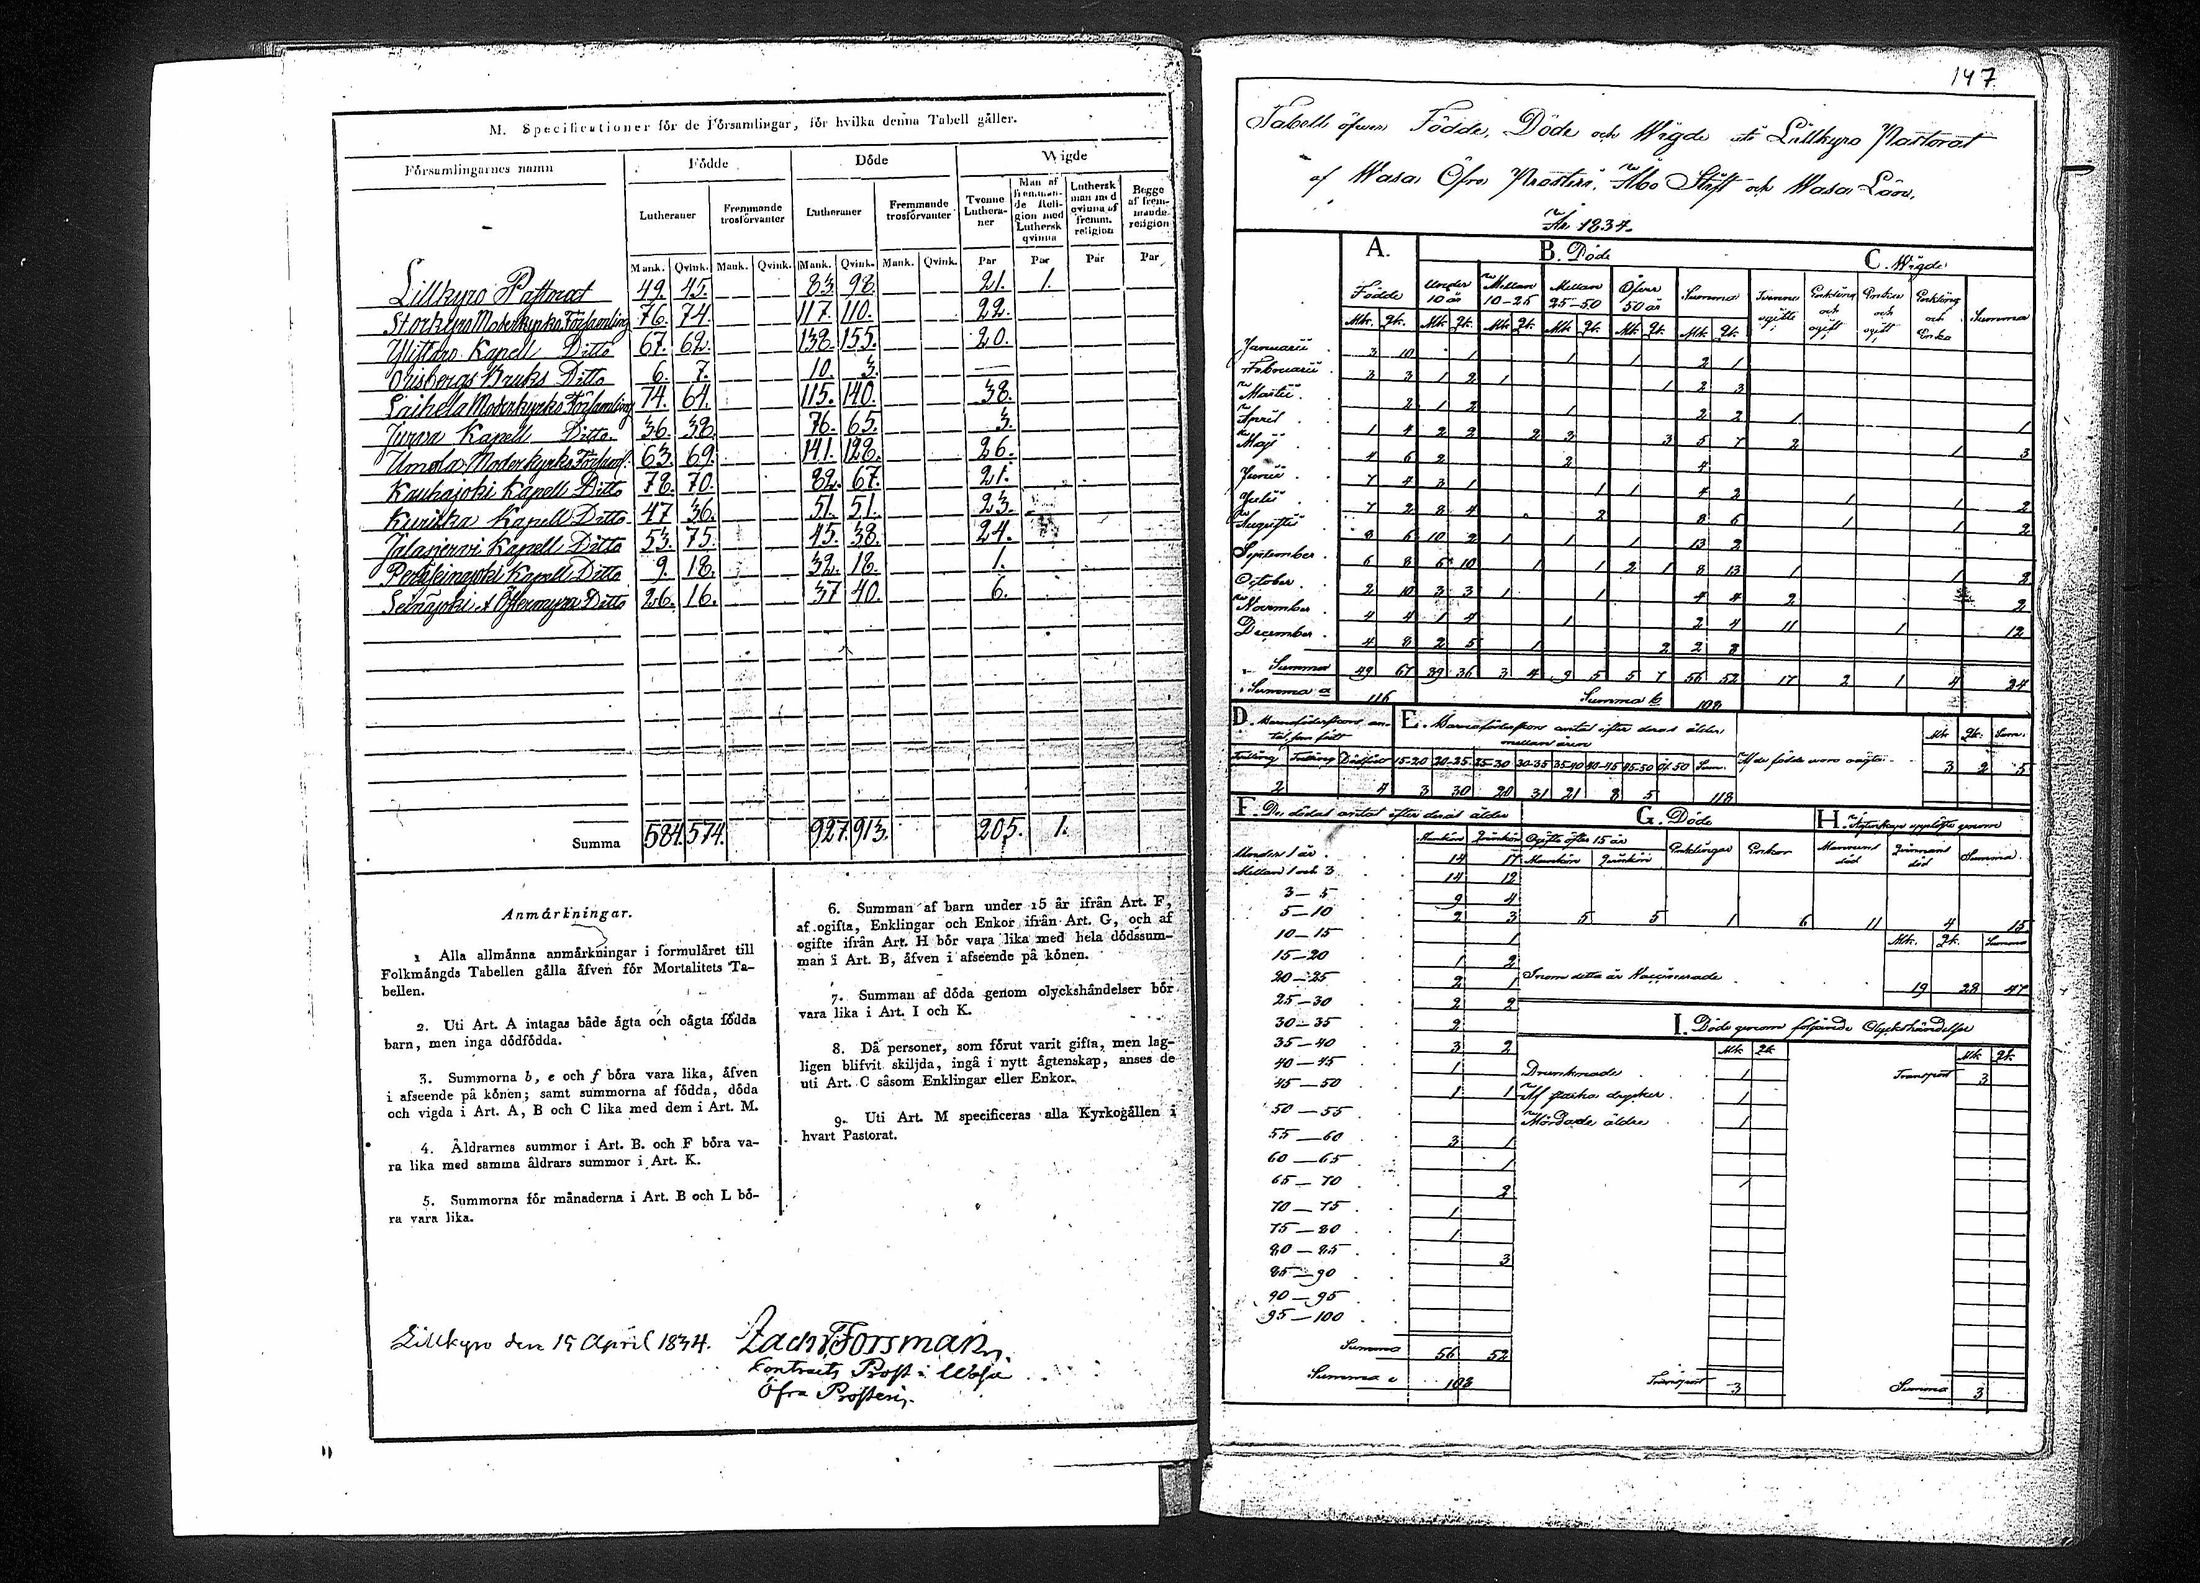 M. Specificationer för de Församlingar, för hvilka denna Tabell gäller.
Församlingarnes namn | Födde | Döde | Wigde
Lutheraner | Fremmande trosförvanter | Lutheraner | Fremmande trosförvanter | Tvenne Lutheraner | Man af fremmande Religion med Luthersk qvinna | Luthersk man med qvinna af fremm. religion | Begge af fremmande religion
Mank. | Qvink. | Mank. | Qvink. | Mank. | Qvink. | Mank. | Qvink. | Par | Par | Par | Par
Lillkyro Pastorat 49. 45. 83. 98. 21. 1.
Storkyro Moderkyrko Församling 76. 74. 117. 110. 22.
Ylistaro Kapell Ditto 67. 62. 138. 155. 20.
Orisbergs Bruks Ditto 6. 7. 10. 3. —
Laihela Moderkyrko Församling 74. 64. 115. 140. 38.
Jurva Kapell Ditto 36. 38. 76. 65. 3.
Umola Moderkyrko Församl. 63. 69. 141. 128. 26.
Kauhajoki Kapell Ditto 78. 70. 82. 67. 21.
Kurikka Kapell Ditto 47 36. 51. 51. 23.
Jalasjervi Kapell Ditto 53. 75. 45. 38. 24.
Peräseinäjoki Kapell Ditto 9. 18. 32. 18. 1.
Seinäjoki & Östermyra Ditto 26. 16. 37 40. 6.
Summa 584. 574. 927. 913. 205. 1.
Anmärkningar.
1 Alla allmänna anmärkningar i formuläret till
Folkmängds Tabellen gälla äfven för Mortalitets Ta-
bellen.
2. Uti Art. A intagas både ägta och oägta födda
barn, men inga dödfödda.
3. Summorna b, e och f böra vara lika, äfven
i afseende på könen; samt summorna af födda, döda
och vigda i Art. A, B och C lika med dem i Art. M.
4. Åldrarnes summor i Art. B. och F böra va-
ra lika med samma åldrars summor i Art. K.
5. Summorna för månaderna i Art. B och L bö-
ra vara lika.
6. Summan af barn under 15 år ifrån Art. F,
af ogifta, Enklingar och Enkor ifrån Art. G, och af
ogifte ifrån Art. H bör vara lika med hela dödssum-
man i Art. B, äfven i afseende på könen.
7. Summan af döda genom olyckshändelser bör
vara lika i Art. I och K.
8. Då personer, som förut varit gifta, men lag-
ligen blifvit skiljda, ingå i nytt ägtenskap, anses de
uti Art. C såsom Enklingar eller Enkor.
9. Uti Art. M specificeras alla Kyrkogällen i
hvart Pastorat.
Lillkyro den 15 April 1834. Zach. Forsman,
Contracts Prost i Wasa
Öfra Prosteri.
147.
Tabell öfver Födde, Döde och Wigde uti Lillkyro Pastorat
af Wasa Öfra Prosteri, Åbo Stift och Wasa Län,
År 1834.
A. | B. Döde | C. Wigde
Födde | Under 10 år | Mellan 10-25 | Mellan 25-50 | Öfver 50 år | Summa | Tvenne ogifte | Enkling och ogift | Enka och ogift | Enkling och Enka | Summa
Mk. Qk. Mk Qk. Mk Qk. Mk Qk. Mk. Qk. Mk. Qk.
Januarii 3 10 1 1 1 2 1
Februarii 3 3 1 2 1 1 2 3
Martii 2 1 2 1 2 2 1 1
April 1 4 2 2 2 3 3 5 7 2 1 3
Maj 4 6 2 2 4
Junii 7 4 3 1 1 1 4 2 1 1 2
Julii 7 2 8 4 2 8 6 1 1 2
Augusti 8 6 10 2 1 1 1 13 2
September 6 8 6 10 1 1 2 1 8 13 1 1 2
October 2 10 3 3 1 1 4 4 2 2
November 4 4 1 4 1 2 4 11 1 12
December 4 8 2 5 1 2 2 8
Summa 49 67 39 36 3 4 9 5 5 7 56 52 17 2 1 4 24
Summa a 116 Summa b 108
D. Barnaföderskors an-
tal, som födt
Tvilling Trilling Dödfödt
2 4
E. Barnaföderskors antal efter deras ålder
mellan åren
15-20 20-25 25-30 30-35 35-40 40-45 45-50 öf. 50 Sum.
3 30 20 31 21 8 5 118
Af de födde voro oägta
Mk Qk. Sum.
3 2 5
F. De dödas antal efter deras ålder
Mankön Qvinkön
Under 1 år 14 17
Mellan 1 och 3 14 12
3—5 9 4
5—10 2 3
10—15 1
15—20 1 2
20—25 2 1
25—30 2 2
30—35 2
35—40 3 2
40—45 1
45—50 1 1
50—55
55—60 3 1
60—65 1
65—70 2
70—75 1
75—80 1
80—85 3
85—90
90—95
95—100
Summa 56 52
Summa e 108
G. Döde
Ogifte öfter 15 år | Enklingar | Enkor
Mankön Qvinkön
5 5 1 6
H. Ägtenskap upplöste genom
Mannens död | Qvinnans död | Summa
11 4 15
Mk. Qk. Summa
Inom detta år Vaccinerade 19 28 47
I. Döde genom följande Olyckshändelse
Mk Qk Mk Qk.
Drunknade 1 Transport 3
Af starka drycker 1
Mördade äldre 1
Transport 3 Summa 3